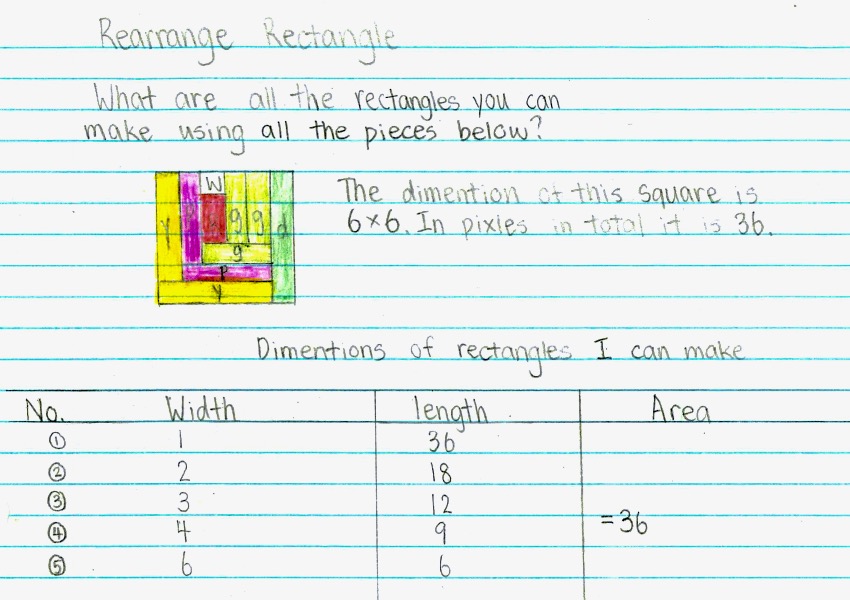 Rearrange Rectangle
What are all the rectangles you can
make using all the pieces below?
W
y p r g g d
g
p
y
The dimention of this square is
6×6. In pixles in total it is 36.
Dimentions of rectangles I can make
No. Width length Area
① 1 36
② 2 18
③ 3 12
④ 4 9
= 36
⑤ 6 6